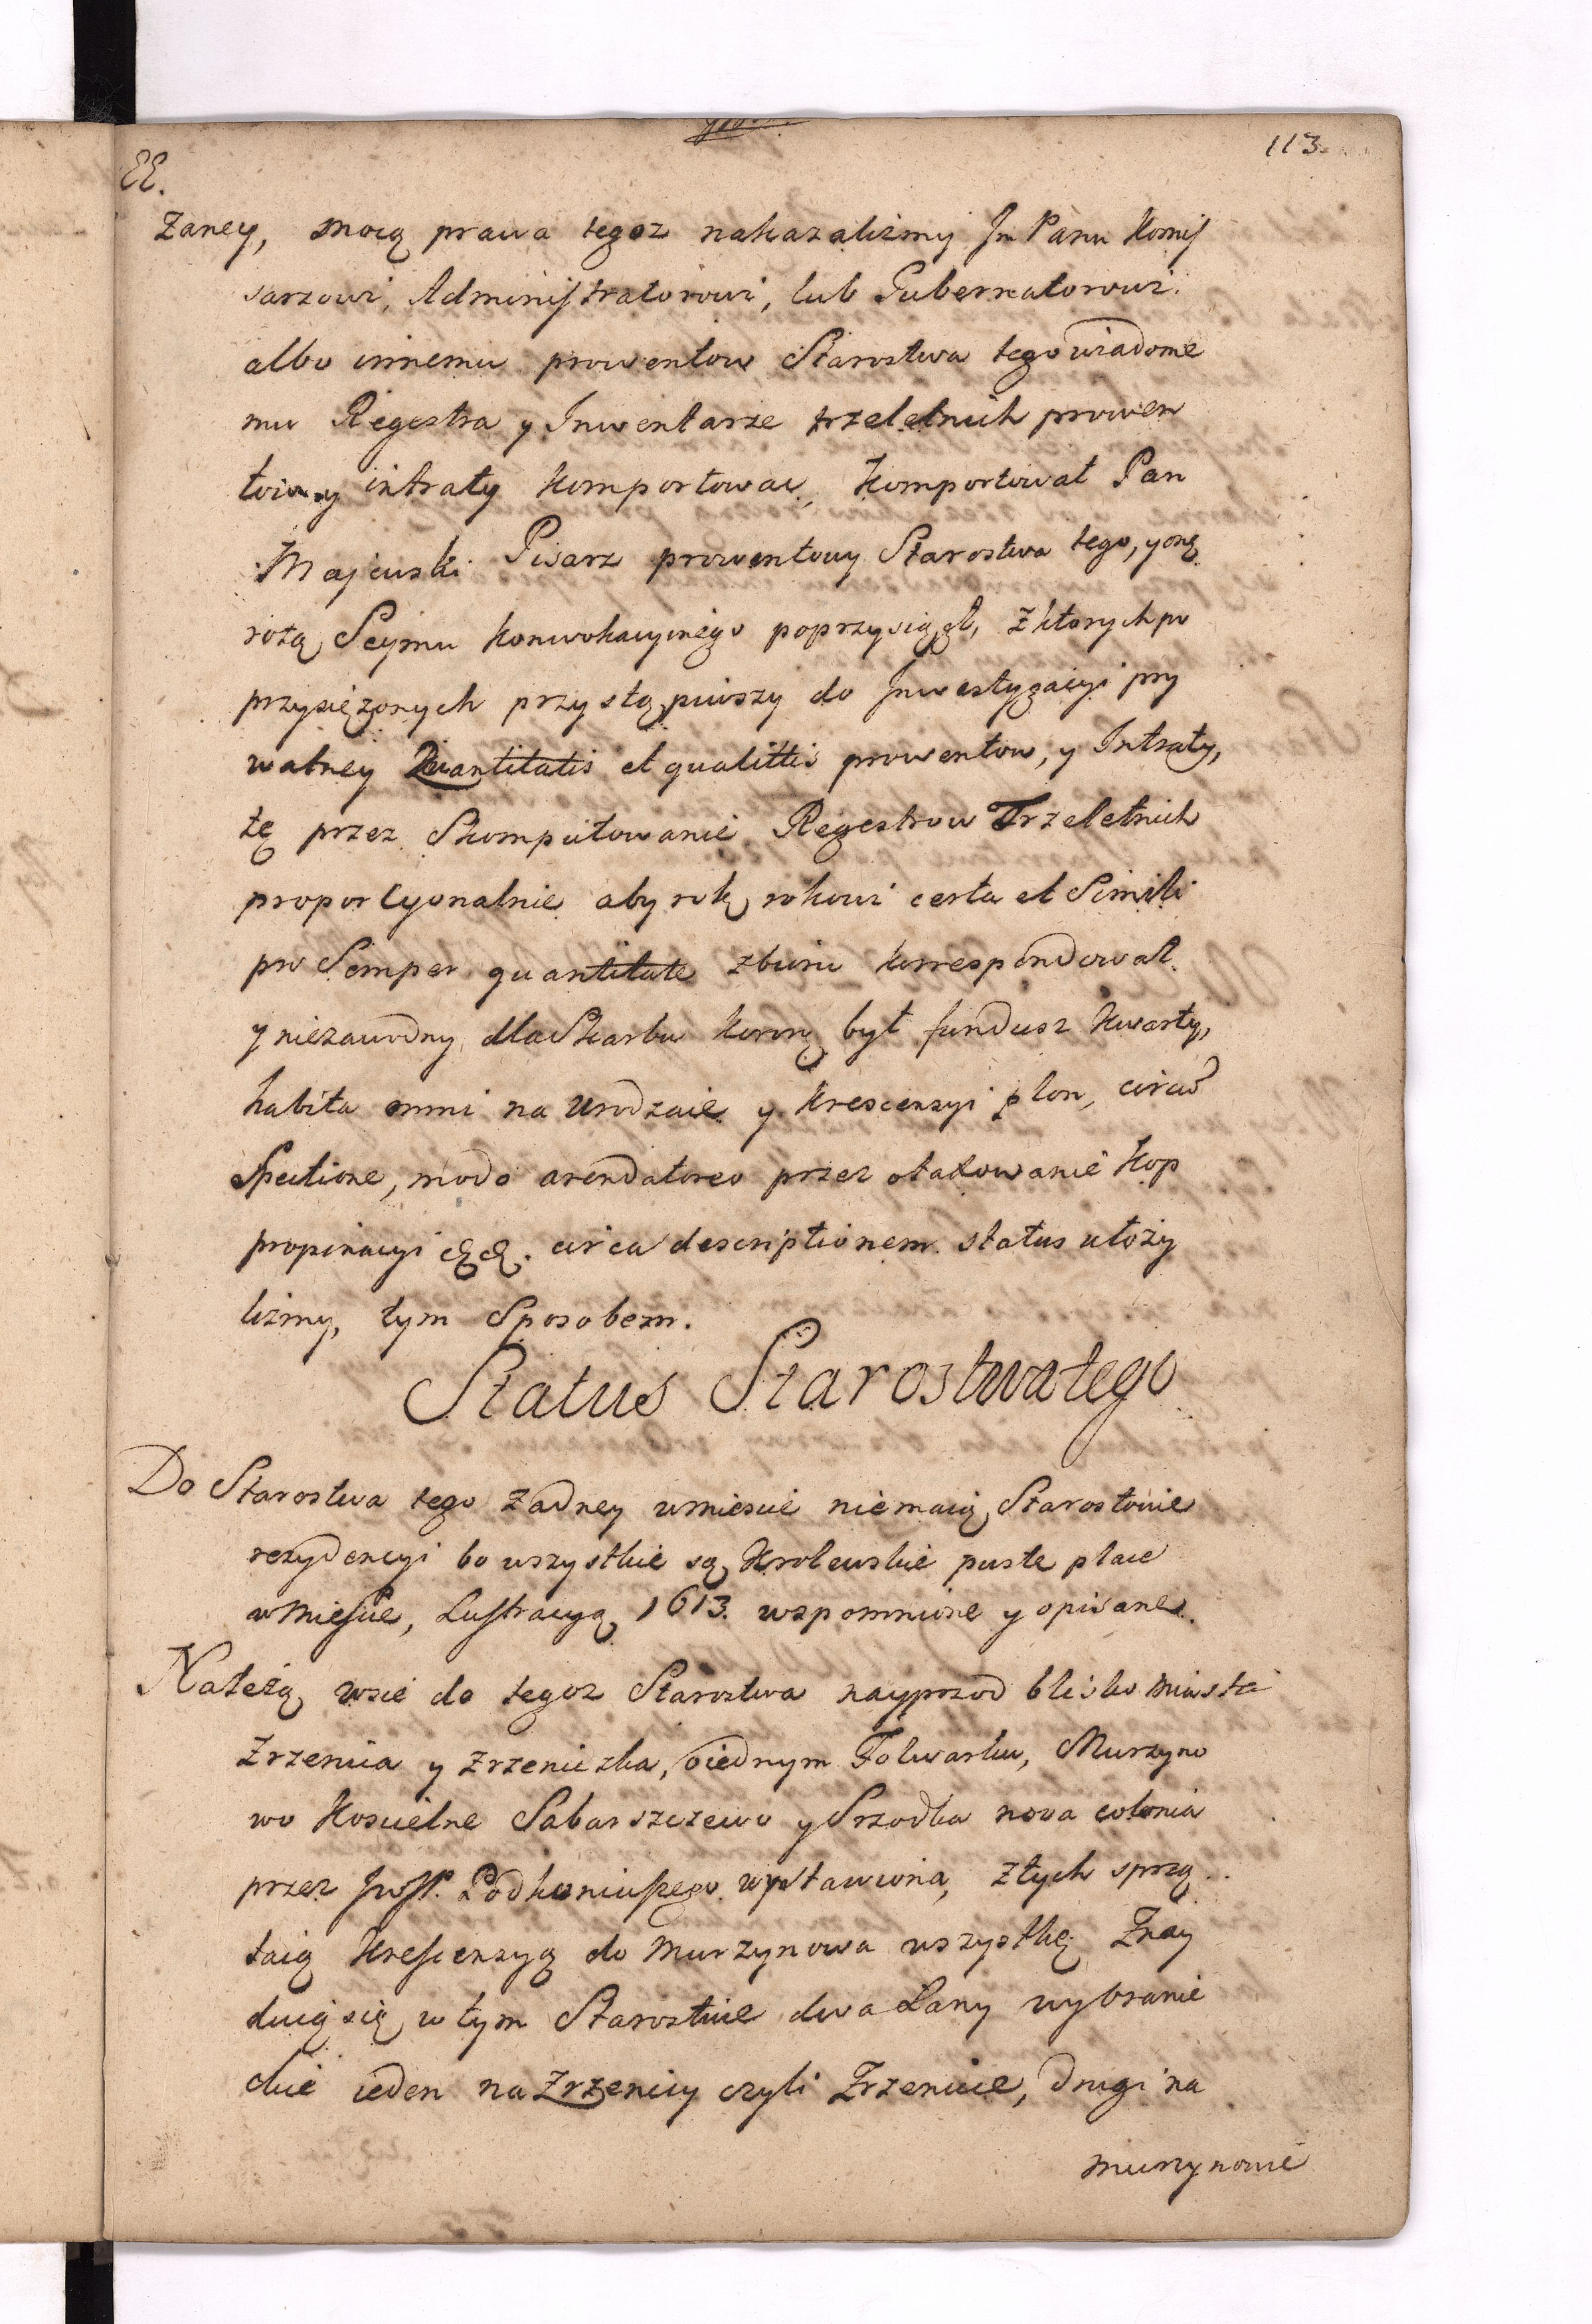 113.
EE.
zaney, mocą prawa tegoz nakazaliżmy Jm Panu Komis
sarzowi, Administratorowi, lub Gubernatorowi.
albo innemu prowentow Starostwa tego wiadome
mu Regestra y Inwentarze trzeletnich prowen
tow y intraty komportowac, komportował Pan
Majewski Pisarz prowentowy Starostwa tego, y onę
rotą Seymu konwokacyinego poprzysiągł, z ktorych po
przysiężonych przystąpiwszy do Inwestygacyi pry
watney Quantitatis et qualittis prowentow, y Intraty,
tę przez Skomputowanie Regestrow Trzeletnich
proporcyonalnie aby rok rokowi certa et Simili
pro Semper quantitate zbioru korrespondował
y niezawodny dla Skarbu Koron był fundusz kwarty,
habita omni na Urodzaie y krescencyi plon, circũ
Spectione, modo arendatoreo przez otaxowanie Kop
propinacyi &c &c. circa descriptionem status ułoży
liżmy, tym Sposobem.
Status Starostwa tego
Do Starostwa tego zadney wmiescie niemaią Starostowie
rezydencyi bo wszystkie są Krolewskie puste place
w Mieście, Lustracyą 1613. wspomnione y opisane.
Należą wsie do tegoz Starostwa nayprzod blisko miasta
Zrzenica y Zrzeniczka, o iednym Folwarku, Murzyno
wo Koscielne Sabaszczewo y Srzodka nova colonia
przez JwJP. Podkoniuszego wystawiona, z tych sprzą
taią Krescencyą do Murzynowa wszystkę Znay
duią się w tym Starostwie dwa Łany wybranie
ckie ieden na Zrzenicy czyli Zrzenice, drugi na
murzynowie